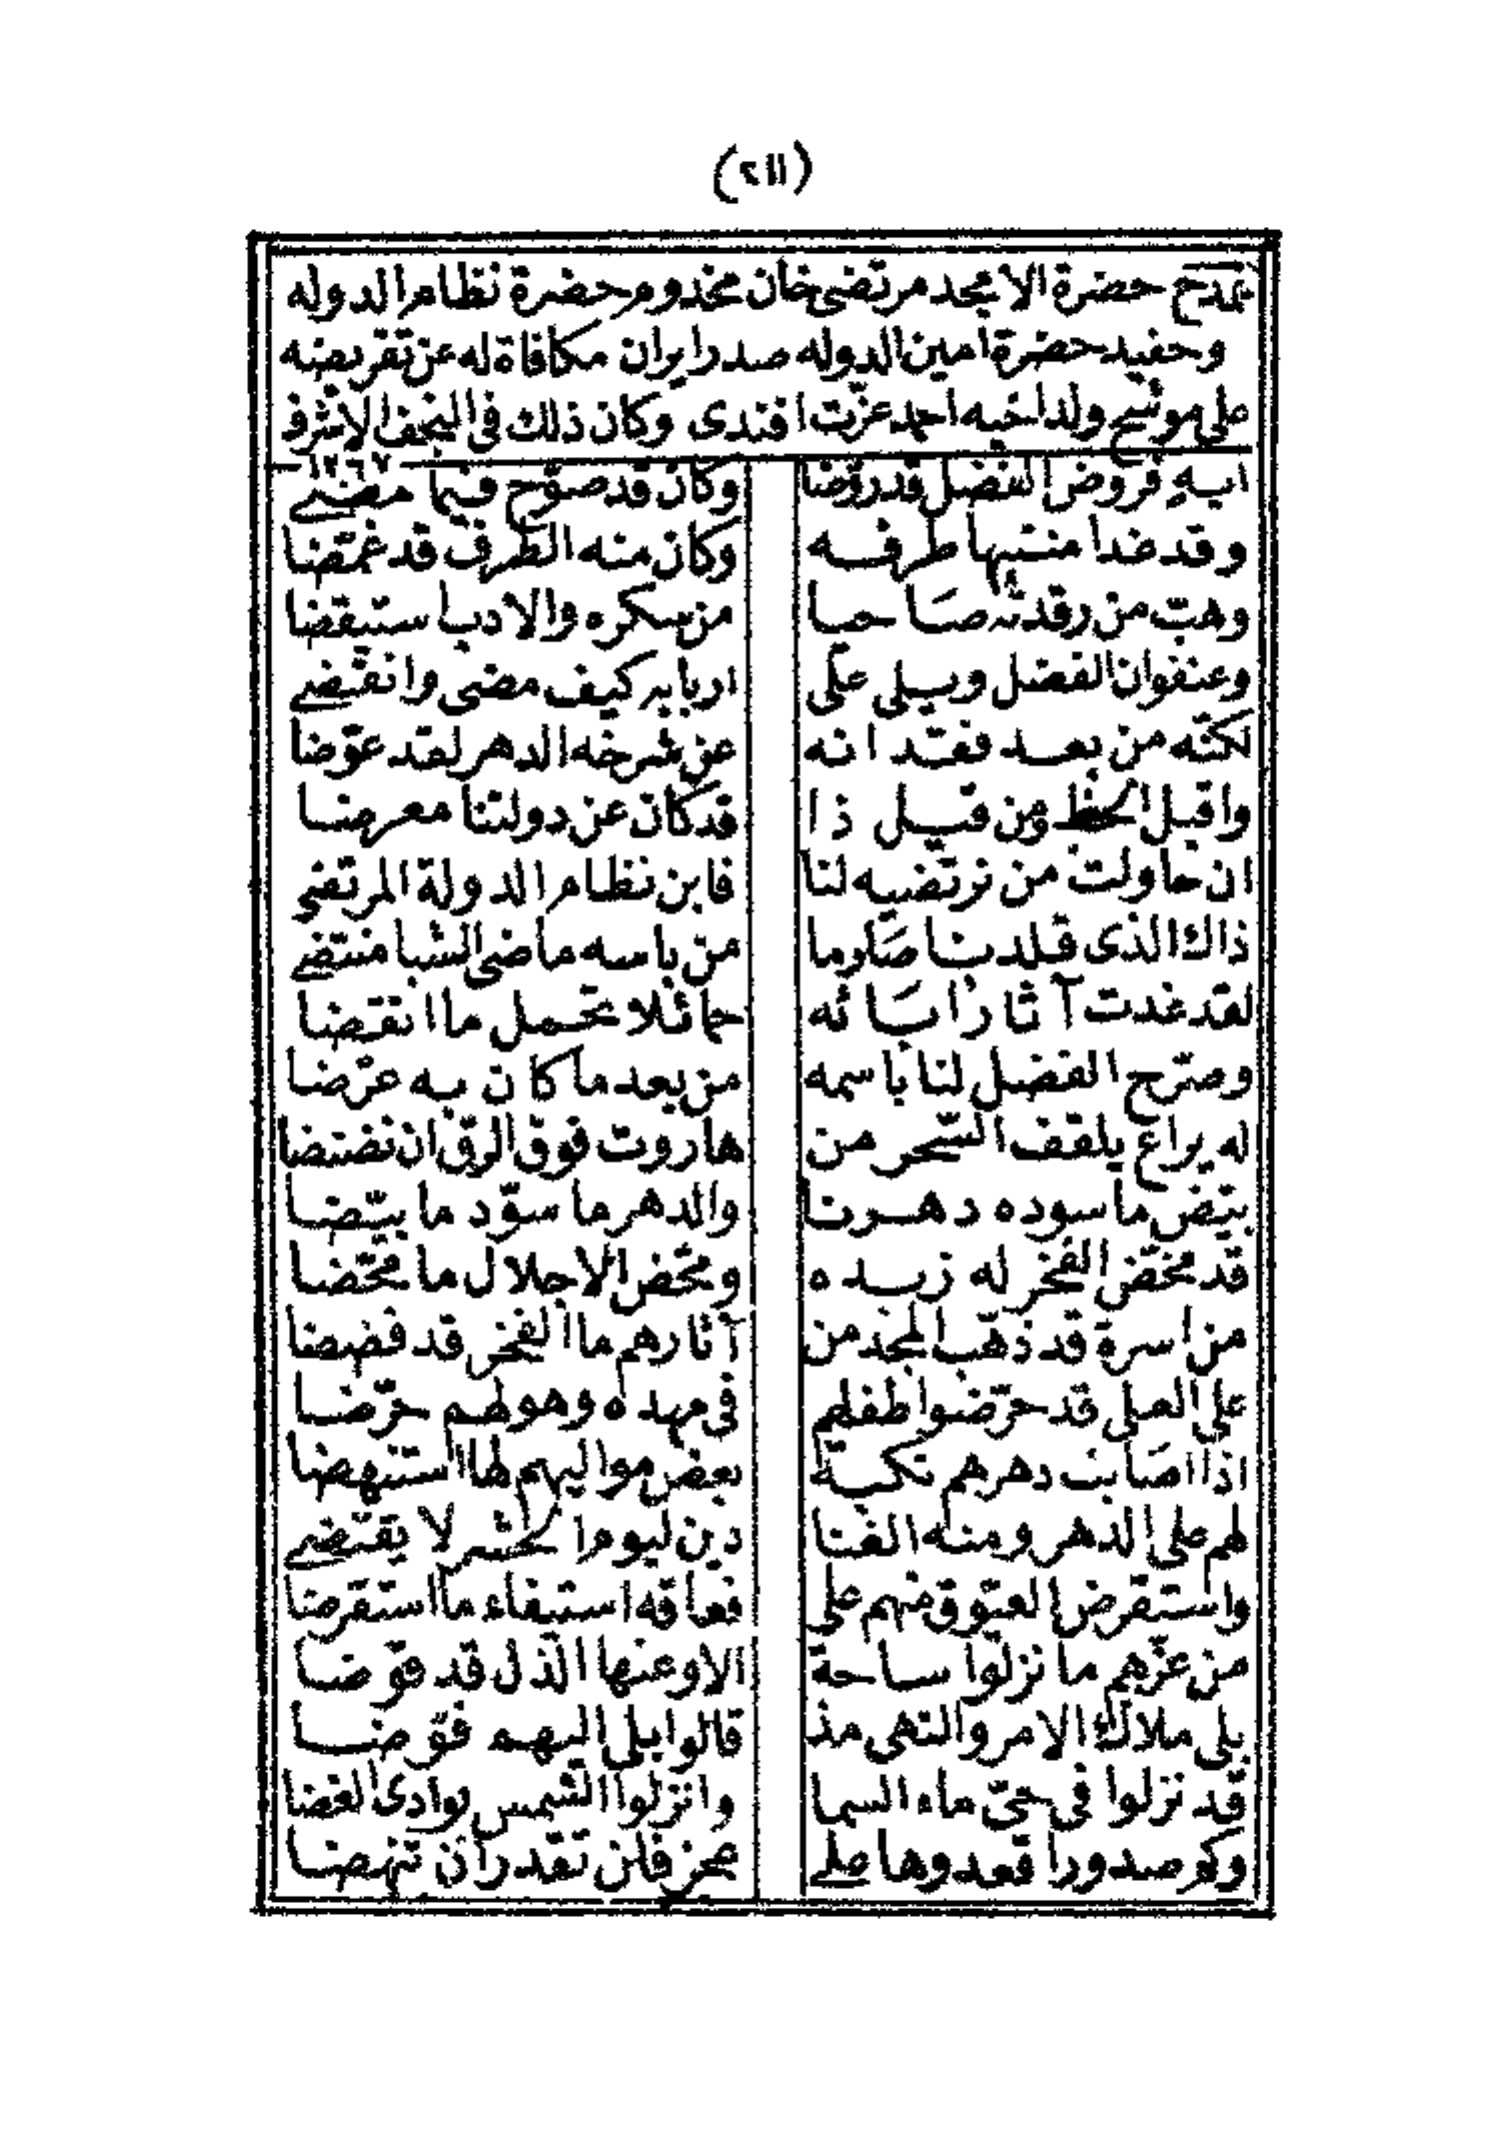 (٢١١)
يمدح حضرة الامجد مرتضى خان مخدوم حضرة نظام الدوله
وحفيد حضرة امين الدوله صدر ايران مكافاة له عن تقريضه
على موشح ولد اخيه احمد عزّت افندى وكان ذلك فى النجف الاشرف
١٢٦٧
ايه فروض الفضل قد روّضا وكان قد صوّح فيما مضى
وقد غدا منتبها طرفه وكان منه الطرف قد غمّضا
وهبّ من رقدته صَاحيا من سكره والادب استيقضا
وعنفوان الفضل ويلى على اربابه كيف مضى وانقضى
لكنّه من بعد فقدانه عن شرخه الدهر لقد عوّضا
واقبل الحظ ومن قبل ذا قد كان عن دولتنا معرضا
ان حاولت من نرتضيه لنا فابن نظام الدولة المرتضى
ذاك الذى قلدنا صَارما من باسه ماضى الشبا منتضى
لقد غدت آثار ابَائه حمائلا تحمل ما انتضا
وصرّح الفضل لنا باسمه من بعد ما كان به عرّضا
له يراع يلقف السّحر من هاروت فوق الرق ان نضنضا
بيّض ما سوده دهرنا والدهر ما سوّد ما بيّضا
قد مخّض الفخر له زبده ومخّض الاجلال ما مخّضا
من اسرة قد ذهّب المجد من آثارهم ما الفخر قد فضضا
على العلى قد حرّضوا طفلهم فى مهده وهو لهم حرّضا
اذا اصَابت دهرهم نكبة بعض مواليهم لها استنهضا
لهم على الدهر ومنه الفنا دين ليوم الحشر لا يقتضى
واستقرض العيّوق منهم على فعاقه استيفاء ما استقرضا
من عزّهم ما نزلوا ساحة الا وعنها الذل قد قوّضا
بلى ملاك الامر والنهى مذ قالوا بلى اليهم فوّضا
قد نزلوا فى حىّ ماء السما وانزلوا الشمس بوادى الغضا
وكم صدورا قعدوها على عجز فلن تقدر ان تنهضا